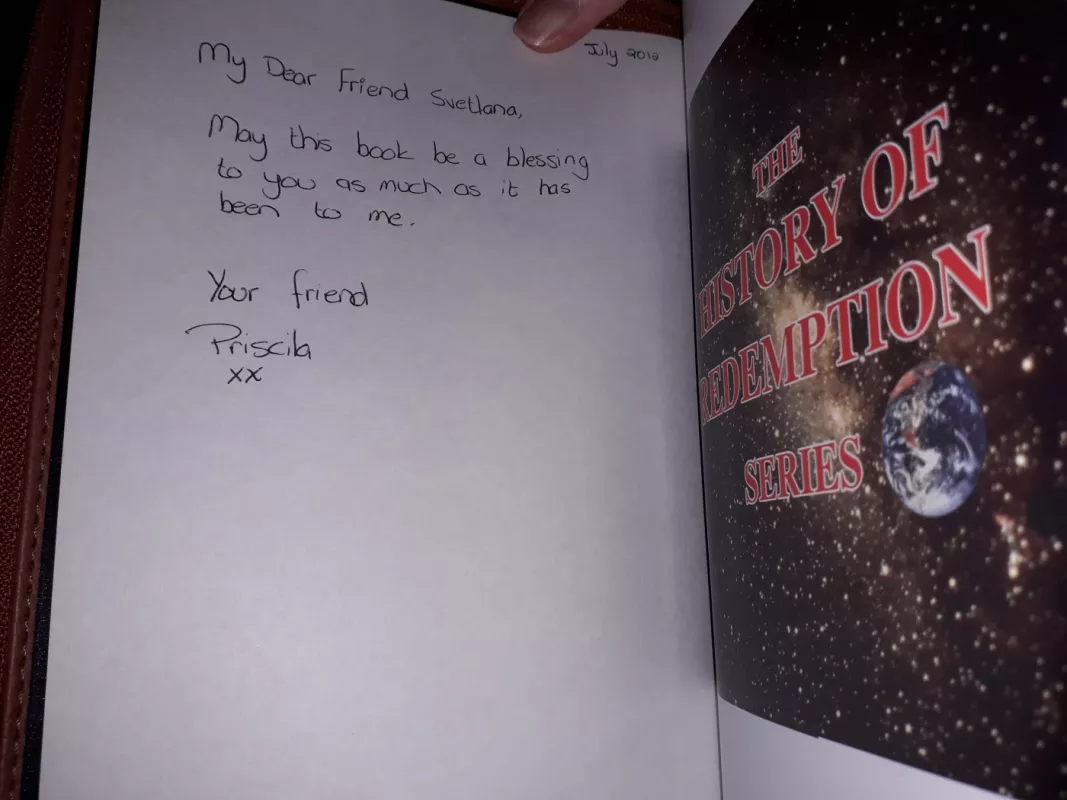 July 2012
My Dear Friend Svetlana,
May this book be a blessing
to you as much as it has
been to me.
Your friend
Priscila
xx
THE
HISTORY OF
REDEMPTION
SERIES